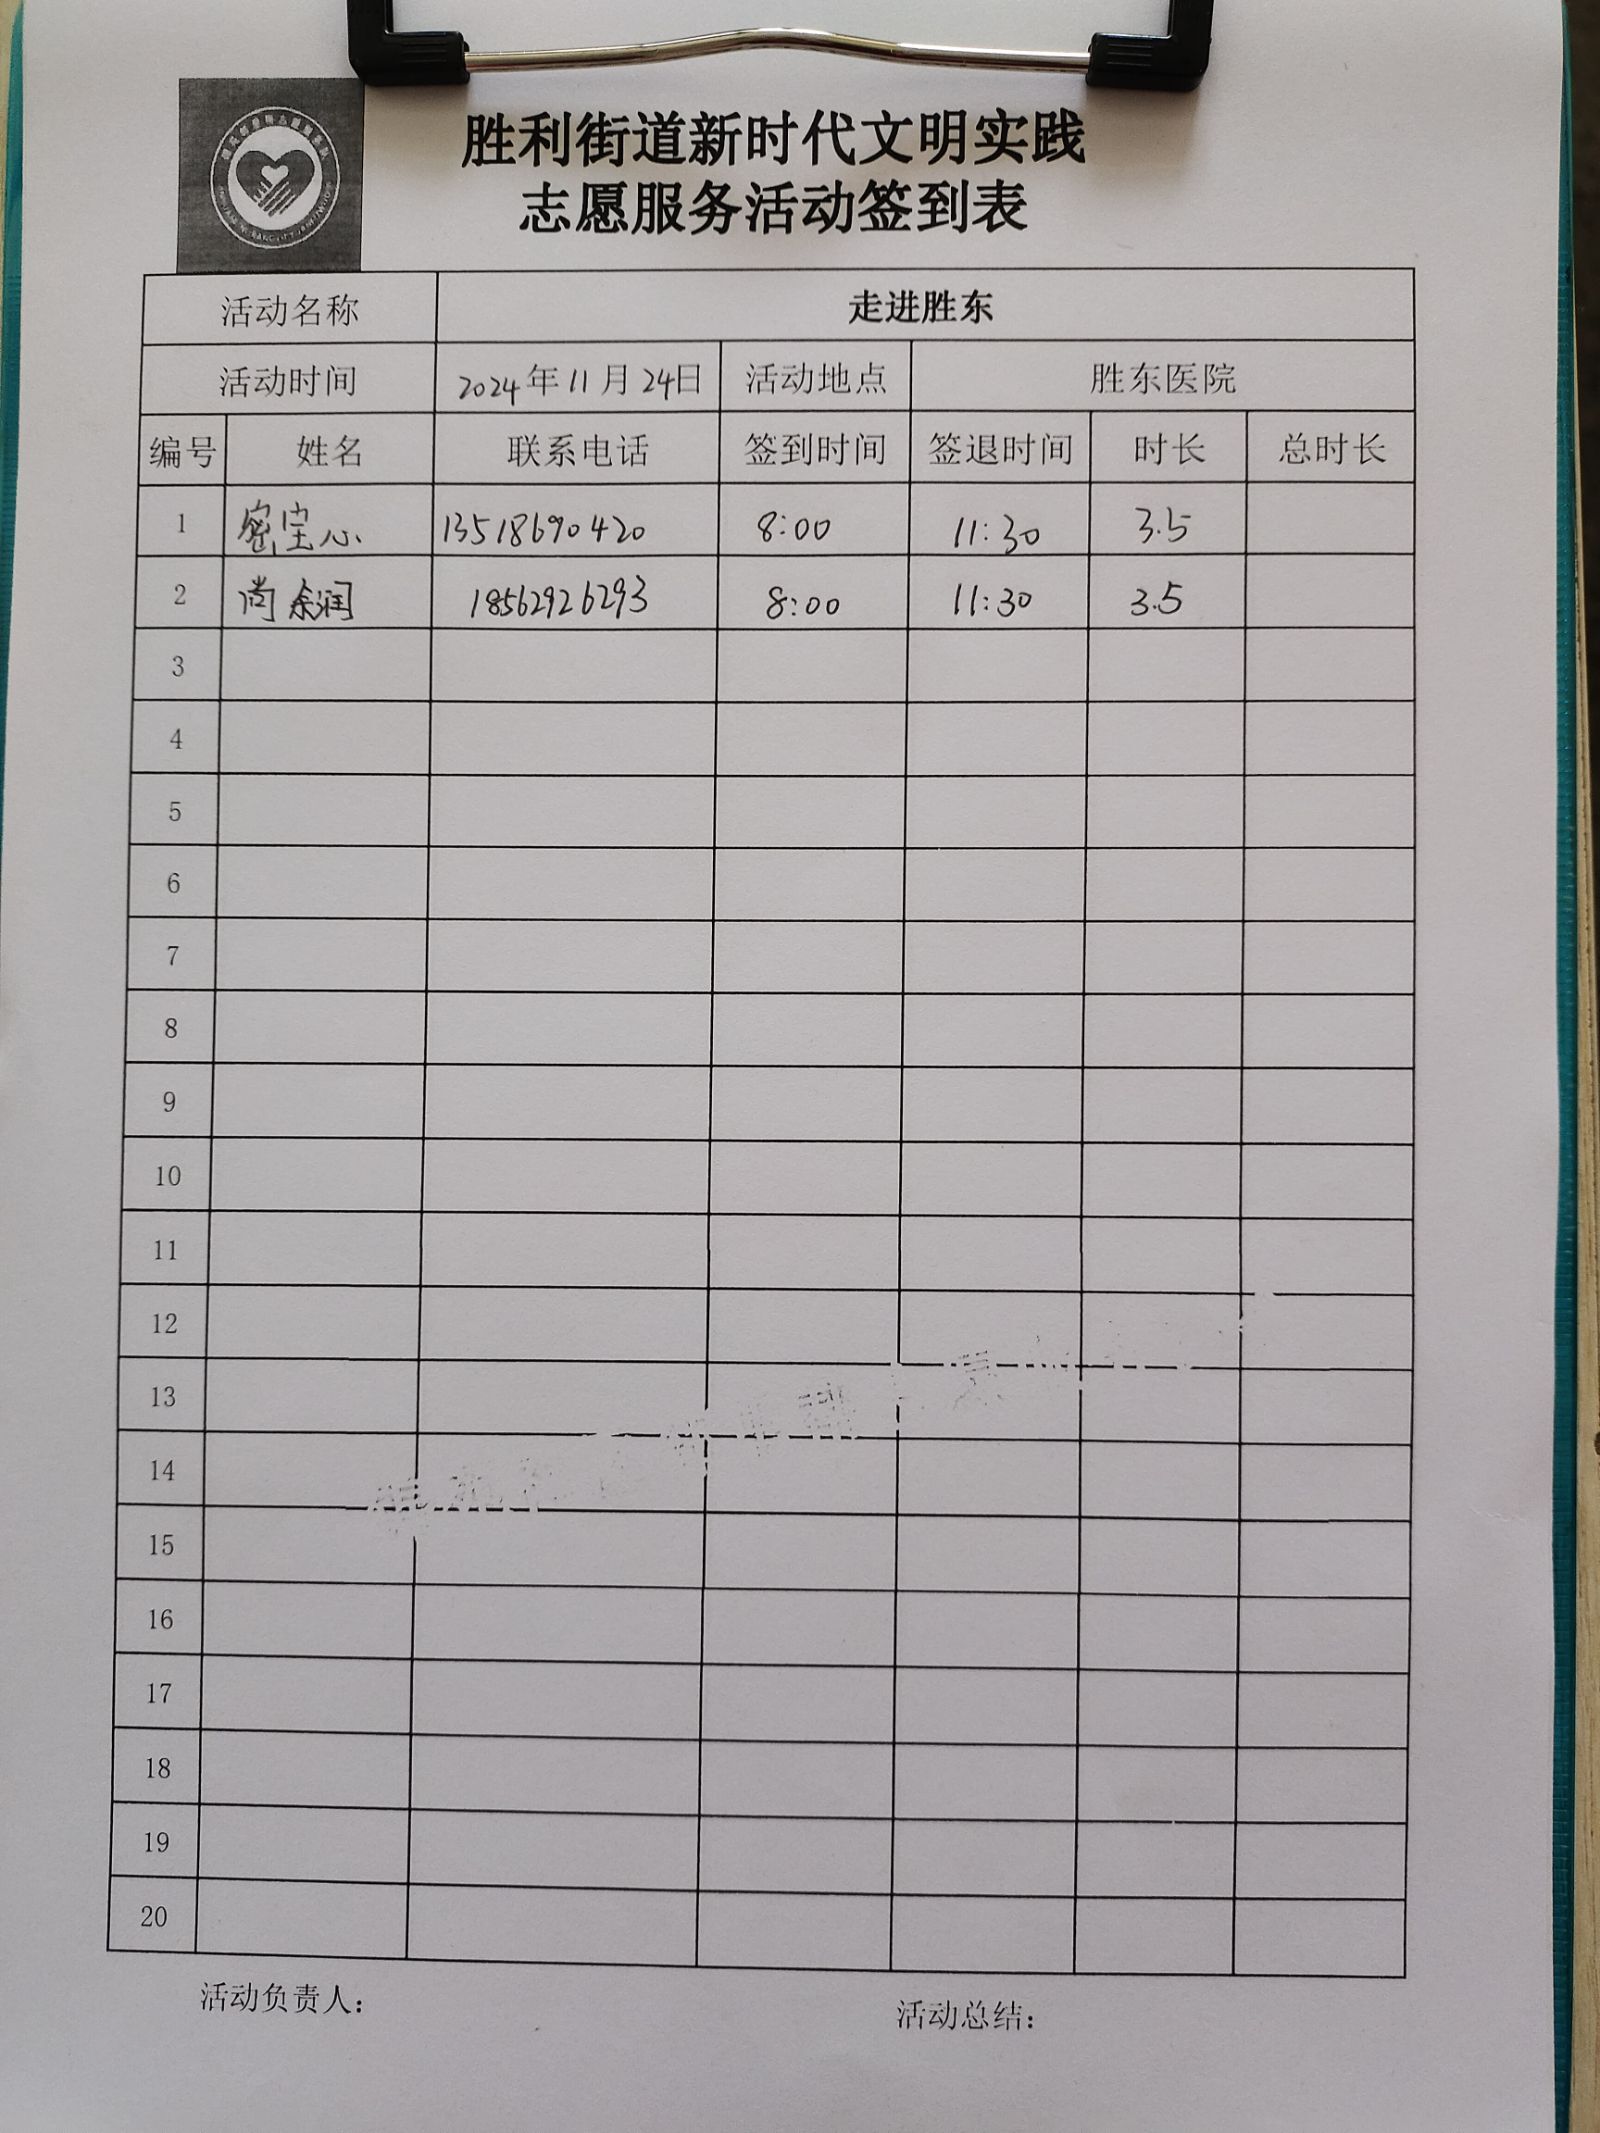 胜利街道新时代文明实践
志愿服务活动签到表
活动名称 走进胜东
活动时间 2024年11月24日 活动地点 胜东医院
编号 姓名 联系电话 签到时间 签退时间 时长 总时长
1 密宝心 13518690420 8:00 11:30 3.5
2 尚余润 18562926293 8:00 11:30 3.5
3
4
5
6
7
8
9
10
11
12
13
14
15
16
17
18
19
20
活动负责人： 活动总结：